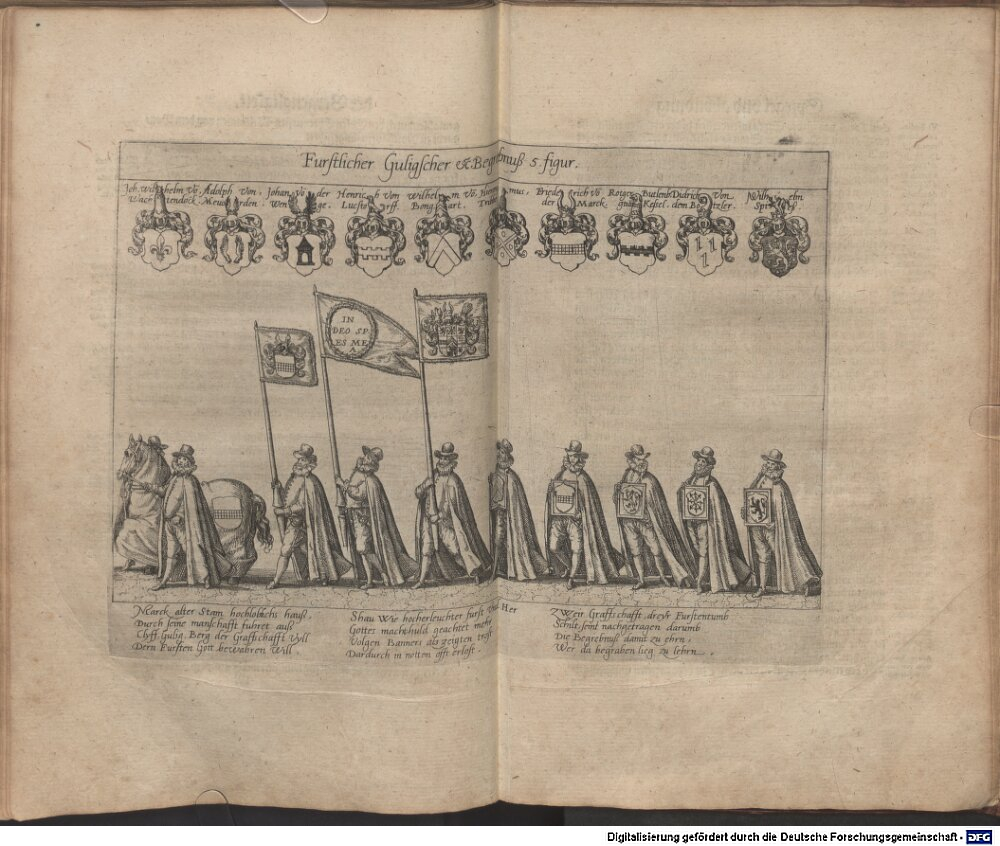 Furstlicher Guligscher &c Begrebnuß 5. figur.
Joh. Wilhelm Vō, Adolph Von, Johan Vō der Henrich Von Wilhelm Vō, mus, Friederich Vō Rotger Butlenb Didrich Von Wilhelm
Wachtendock. der Marck. Keßel. den
IN
DEO SP
ES ME
A
Marck alter Stam hochloblichs hauß
Durch seine manschafft fuhret auß
Clyff. Gulig. Berg der Graffschafft Vyll
Dern Fursten Gott bewahren Will.
Shau Wie hocherleuchter furst Vnd Her
Gottes macht huld geachtet mehr
Volgen Banners als zeigten trost
Dardurch in notten offt erlost.
Zweir Graffschafft dreyr Furstentumb
Schilt seint nachgetragen darumb
Die Begrebnuß damit zu ehrn,
Wer da begraben lieg zu lehrn.
Digitalisierung gefördert durch die Deutsche Forschungsgemeinschaft - DFG